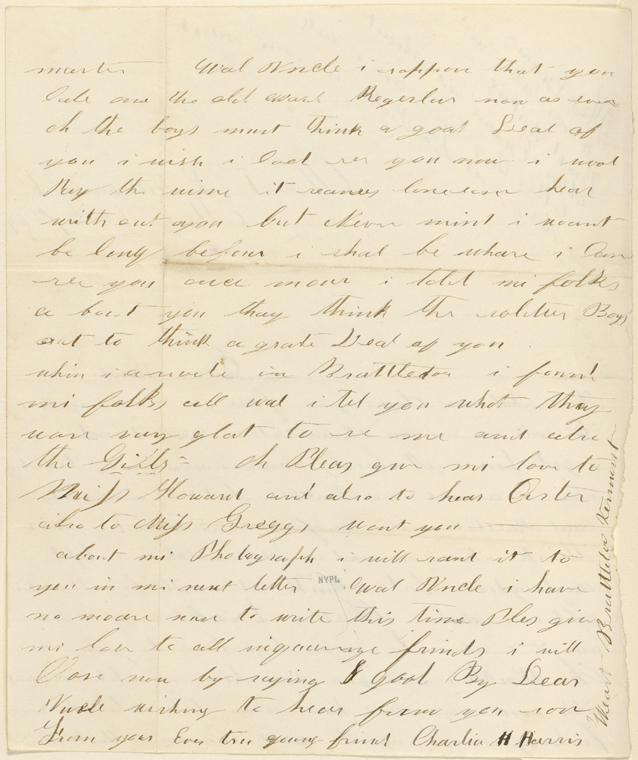 master Wal Uncle i suppose that you
the old ward Regeslar now as ever
oh the boys must think a goat Deal of
you i wish i Cood see you now i wood
the it lonesom hear
with out you but Never mint i woant
be long before i shal be whare i Can
see you once moar i told mi folks
a bout you thay think the solder Boys
out to think a grate Deal of you
whin i in Brattlebor i found
mi folks all wal i tel you what thay
ware vary glat to se me and also
the Gills oh Pleas give mi love to
Miss Howard and also to hear Cister
also to Miss Greggs wont you
about mi Photograph i will sant it to
you in mi next letter Wal Uncle i have
no moare now to write this time Ples give
mi love to all frinds i will
Close now by saying goot By Dear
Uncle wishing to hear from you soon
From your Ever tru young frind Charlie H Harris
Brattlebor
NYPL